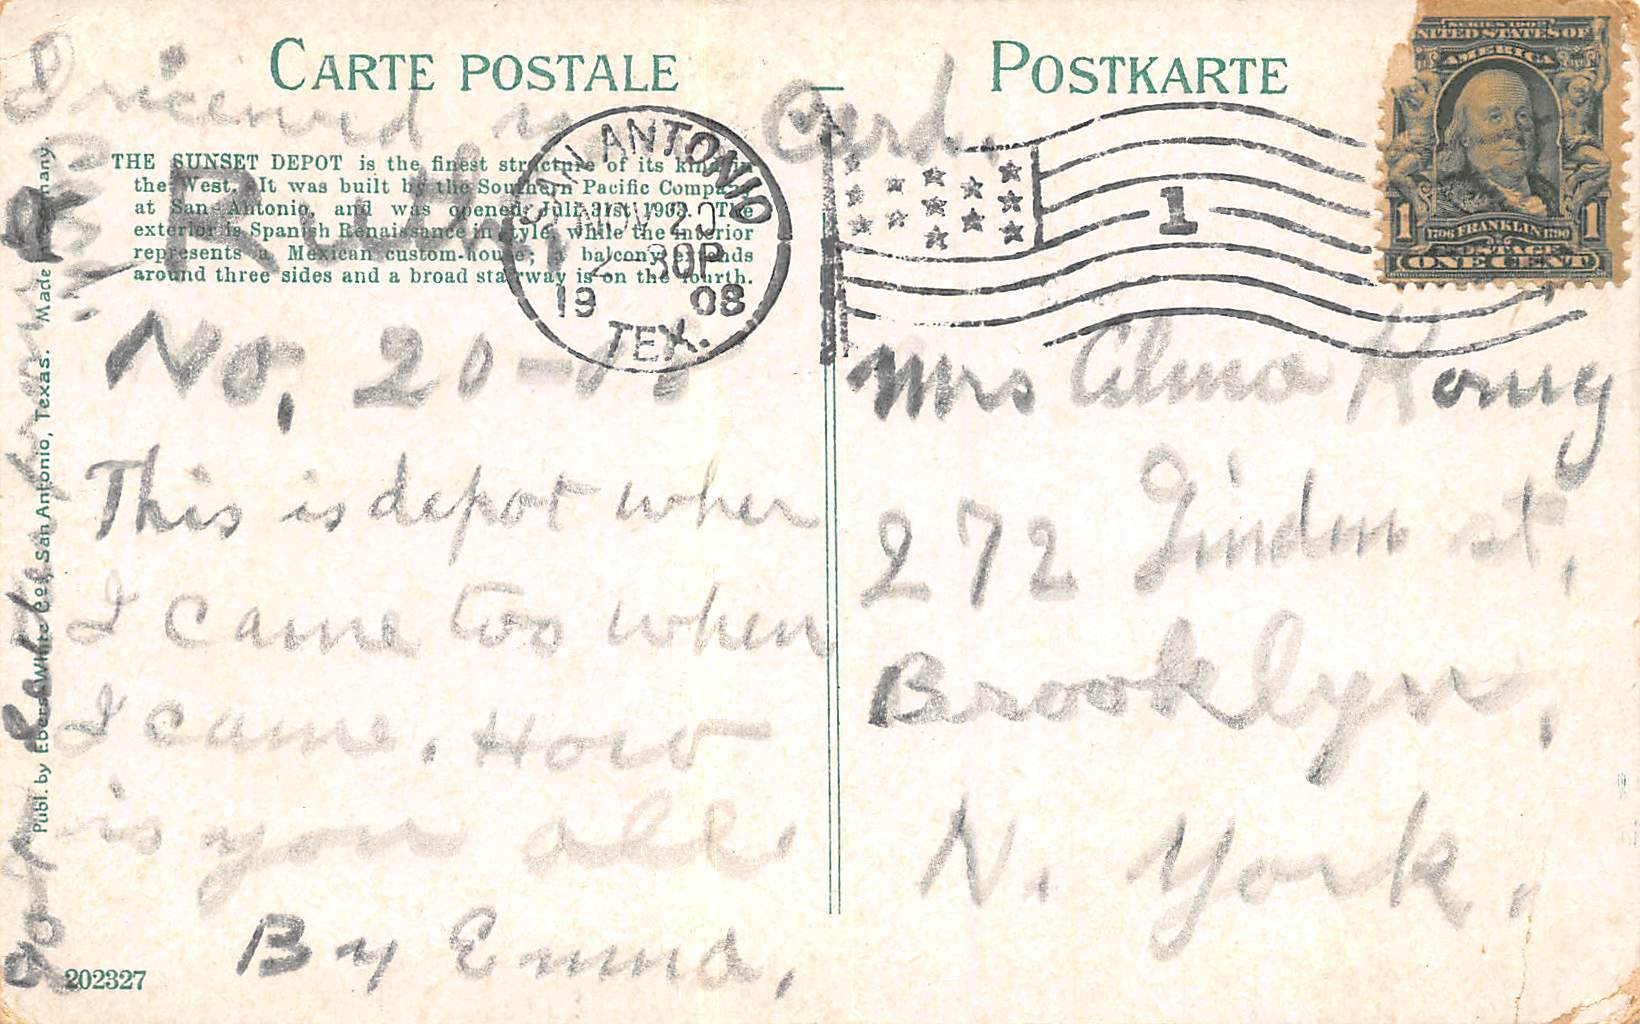 CARTE POSTALE
POSTKARTE
I ricevurd Card.
THE SUNSET DEPOT is the finest structure of its kind in
the West. It was built by the Southern Pacific Company
at San Antonio, and was opened Juli 31st 1903. The
exterior is Spanish Renaissance in style, while the interior
represents a Mexican custom-house; a balcony extends
around three sides and a broad stairway is on the fourth.
Ruth
SAN ANTONIO
NOV 20
2 30P
19 08
TEX.
1
SERIES 1902
UNITED STATES OF
AMERICA
1 1
1706 FRANKLIN 1790
POSTAGE
ONE CENT
No, 20-08
This is depot wher
I came too when
I came. How
is you all
By Emma,
Mrs Alma Konig
272 Linden st,
Brooklyn,
N. York.
Publ. by Ebers-White Co., San Antonio, Texas. Made in Germany.
202327